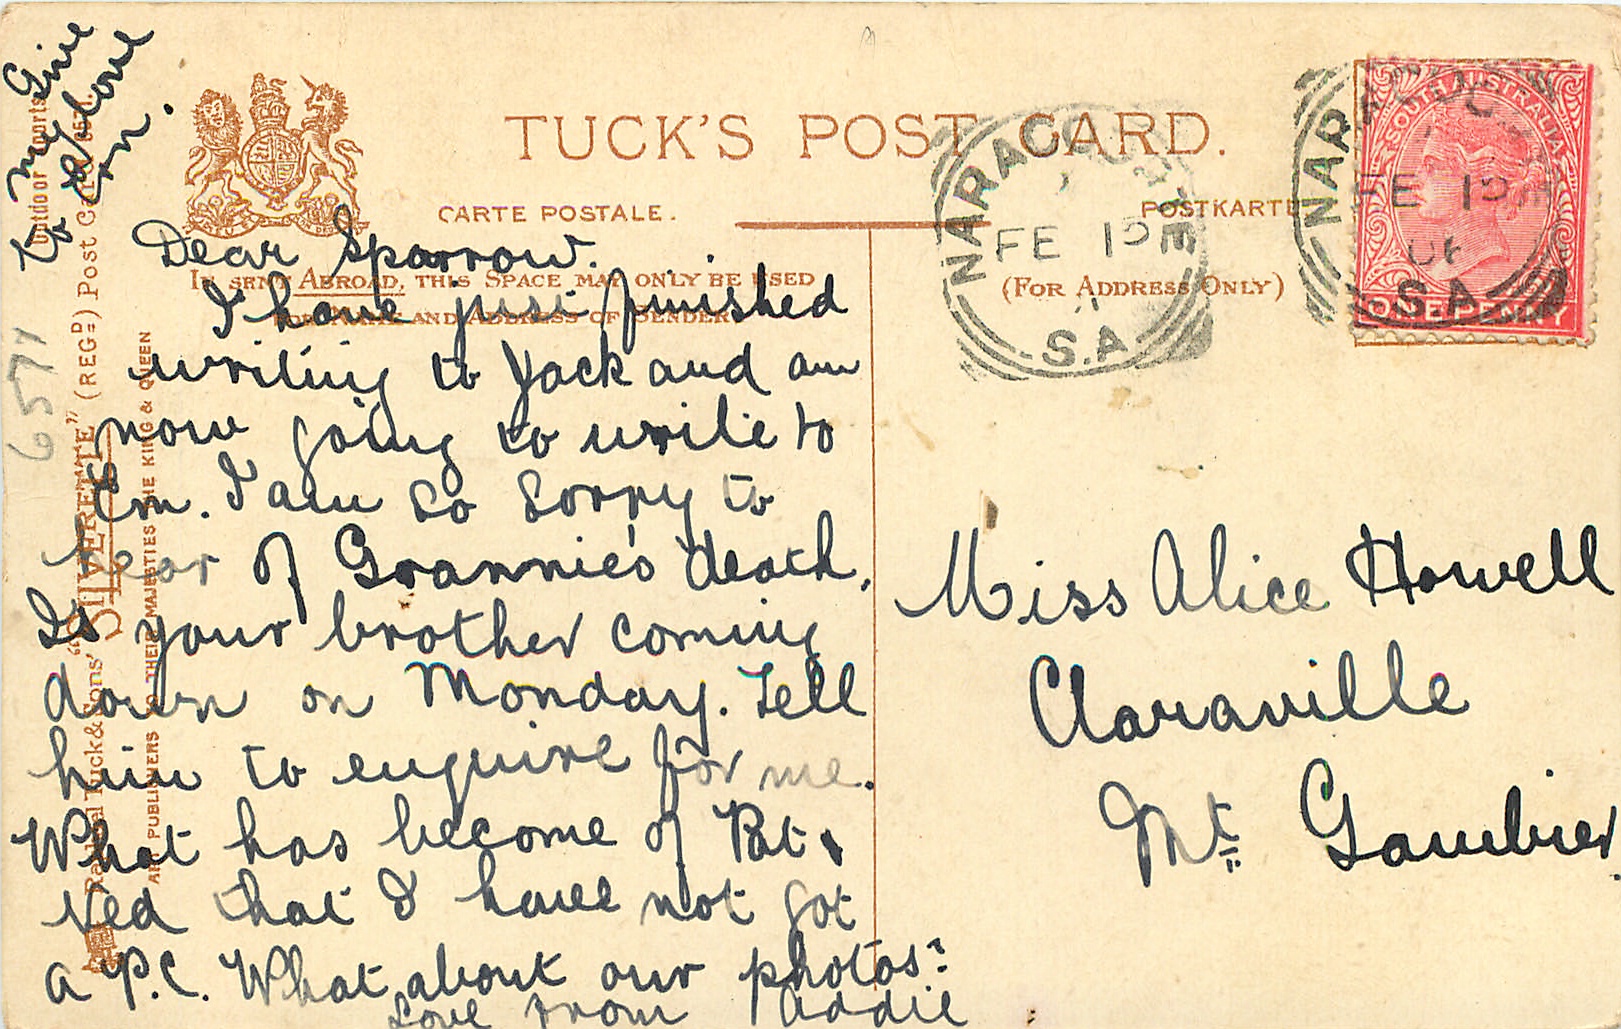 TUCK'S POST CARD.
CARTE POSTALE.
POSTKARTE
IF SENT ABROAD, THIS SPACE MAY ONLY BE USED
FOR NAME AND ADDRESS OF SENDER
(FOR ADDRESS ONLY)
NARACOORTE
FE 15
S.A
NARA
FE 15
06
S.A
SOUTH AUSTRALIA
ONE PENNY
Dear Sparrow.
I have just finished
writing to Jack and am
now going to write to
Em. I am so sorry to
hear of Grannie's death.
Is your brother coming
down on Monday. Tell
him to enquire for me.
What has become of Pat &
Ned that I have not got
a P.C. What about our photos?
Love from Addie
Give
me love
to Em.
Miss Alice Howell
Claraville
Mt Gambier.
Raphael Tuck & Sons' "SILVERETTE" (REGD) Post Card
Outdoor Sports
ART PUBLISHERS TO THEIR MAJESTIES THE KING & QUEEN
6571